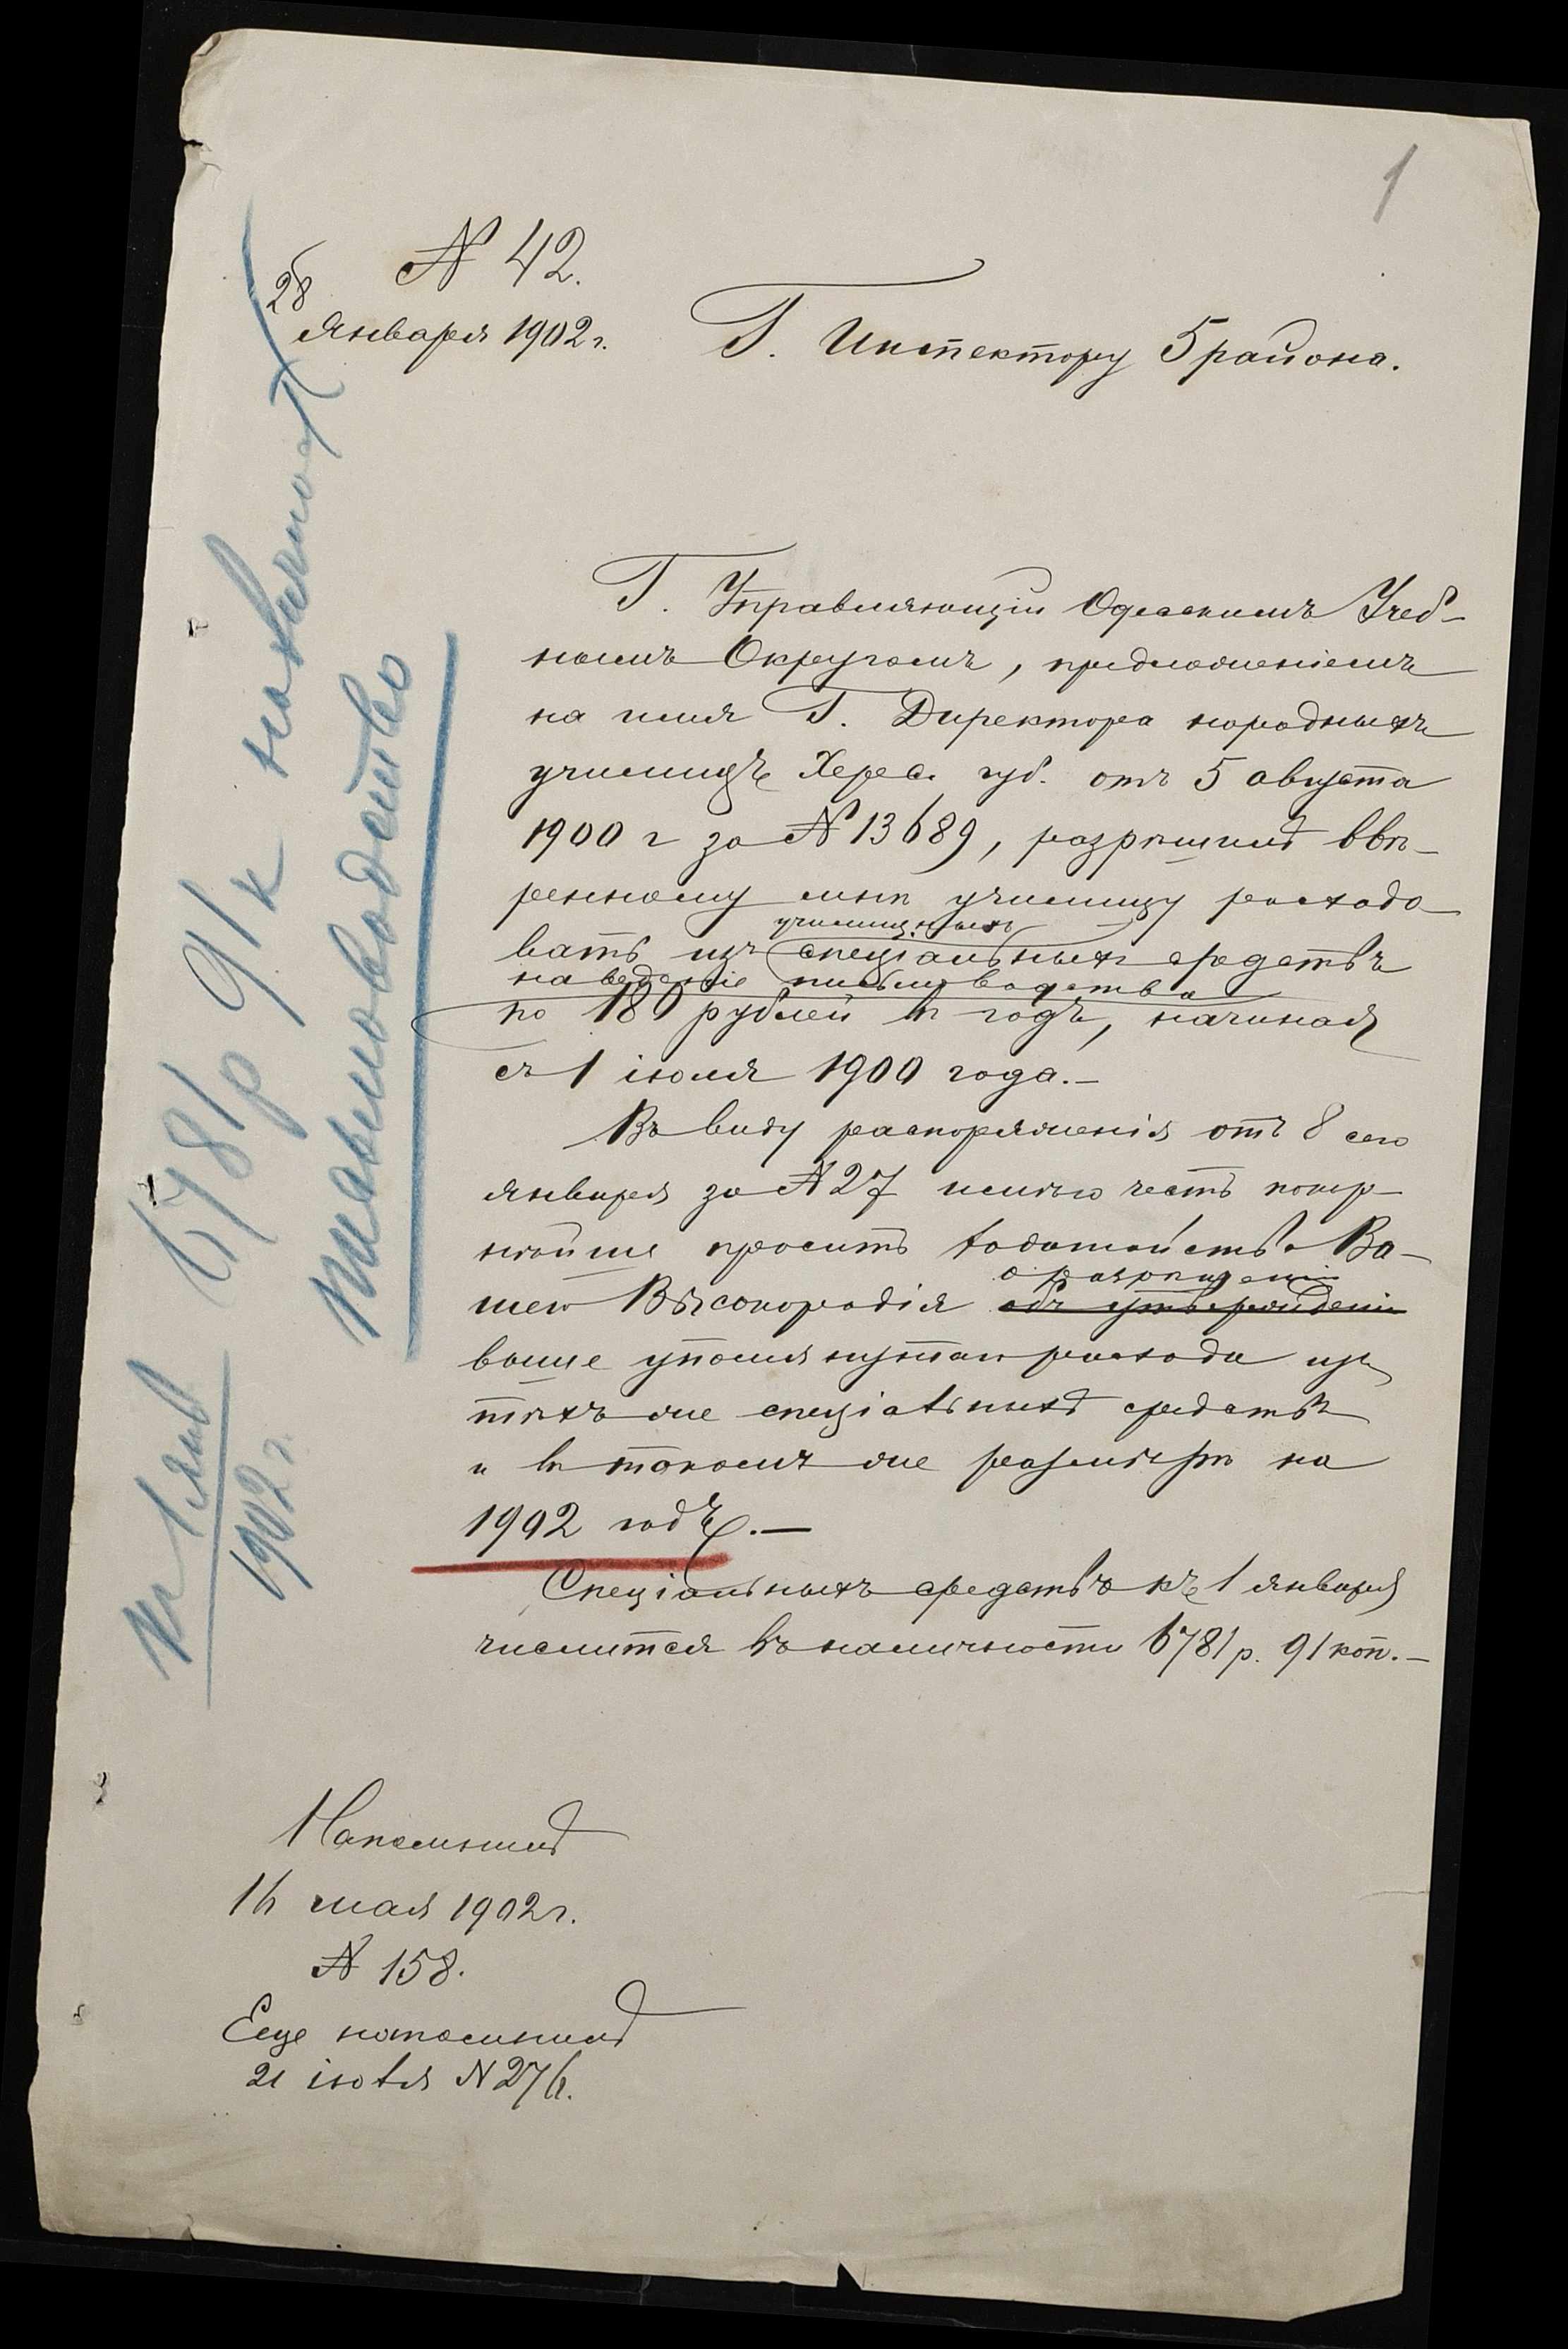 1
N 42.
28
Января 1902 г.
Г. Инспектору 5 района.
Г. Управляющій Одесскимъ Учеб-
нымъ Округомъ, предложеніемъ
на имя Г. Директора народныхъ
училищъ Херс. губ. отъ 5 августа
1900 г за N 13689, разрѣшилъ ввѣ-
ренному мнѣ училищу расходо-
училищныхъ
вать изъ спеціальныхъ средствъ
на веденіе письмоводства
по 180 рублей въ годъ, начиная
съ 1 іюля 1900 года.-
Въ виду распоряженія отъ 8 сего
января за N 27 имѣю честь покор-
нѣйше просить ходатайства Ва-
о разрѣшеніи
шего Высокородія объ утвержденіи
выше упомянутаго расхода изъ
тѣхъ же спеціальныхъ средствъ
и въ такомъ же размѣрѣ на
1902 годъ.-
Спеціальныхъ средствъ къ 1 января
числится въ наличности 6781 р. 91 коп.-
Напомнилъ
16 мая 1902 г.
N 158.
Еще напомнилъ
21 іюля N 276.
къ 1 янв
1902 г.
6781 р 91 к наличност
письмоводство